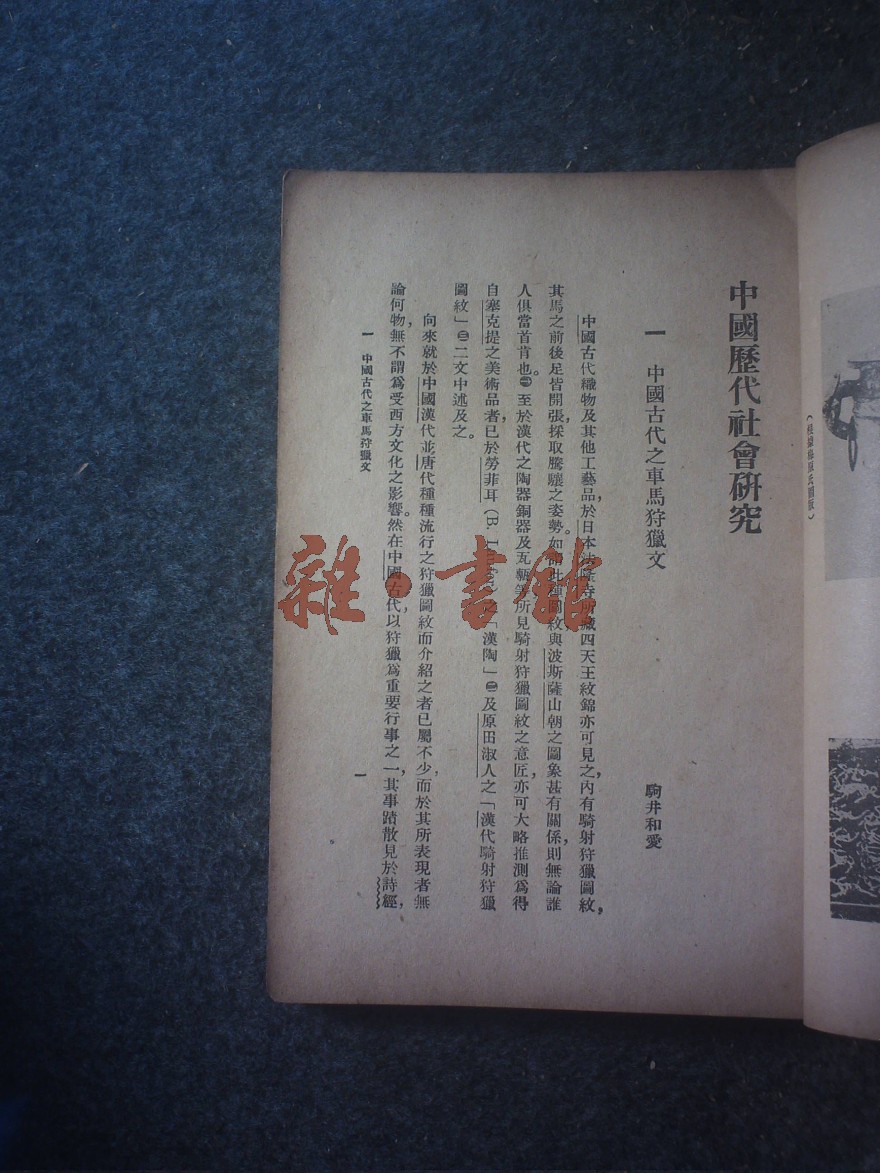 中國歷代社會硏究
一　中國古代之車馬狩獵文
駒井和愛
中國古代織物及其他工藝品，於日本法隆寺所藏四天王紋錦亦可見之，內有騎射狩獵圖紋，
其馬之前後足皆開張，採取騰驤之姿勢。如謂此種圖紋與波斯薩山朝之圖象甚有關係，則無論誰
人俱當首肯也。㊀至於漢代之陶器銅器及瓦甎等所見騎射狩獵圖紋之意匠，亦可大略推測爲得
自塞克提之美術品者，已於勞菲耳（B. Laufer）之「漢陶」㊁及原田淑人之「漢代騎射狩獵
圖紋」㊂二文中述及之。
向來就於中國漢代並唐代種種流行之狩獵圖紋而介紹之者已屬不少，而於其所表現者無
論何物，無不謂爲受西方文化之影響。然在中國古代，以狩獵爲重要行事之一，其事蹟散見於詩經，
一　中國古代之車馬狩獵文
一
雜·書館